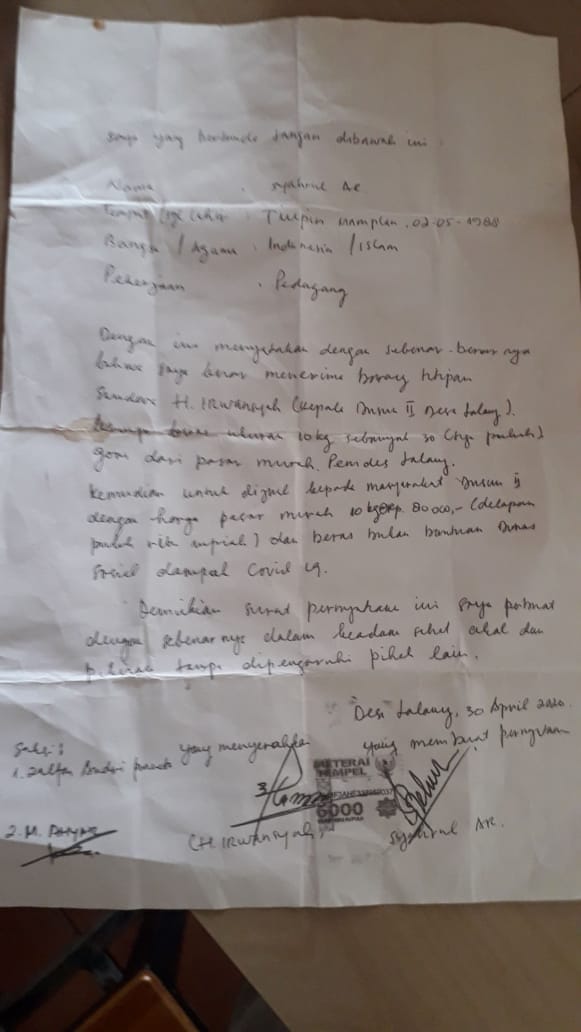 Saya yang bertanda tangan dibawah ini :
Nama : Syahrul AR
Tempat /tgl lahir : , 02-05-1988
Bangsa / Agama : Indonesia / Islam
Pekerjaan : Pedagang
Dengan ini menyatakan dengan sebenar-benarnya
bahwa saya benar menerima barang titipan
Saudara H. IRWANSYAH (Kepala Dusun II Desa Lalang).
berupa beras ukuran 10 kg sebanyak 30 (tiga puluh)
goni dari pasar murah Pemdes Lalang.
Kemudian untuk dijual kepada masyarakat Dusun II
dengan harga pasar murah 10 kg@Rp. 80.000,- (delapan
puluh ribu rupiah) dan beras bukan bantuan Dinas
Sosial dampak Covid 19.
Demikian surat pernyataan ini saya perbuat
dengan sebenarnya dalam keadaan sehat akal dan
pikiran tanpa dipengaruhi pihak lain.
Desa Lalang, 30 April 2020.
Saksi :
yang menyerahkan
yang membuat pernyataan
1.
METERAI
TEMPEL
6000
2. M.
(H. IRWANSYAH)
Syahrul AR.